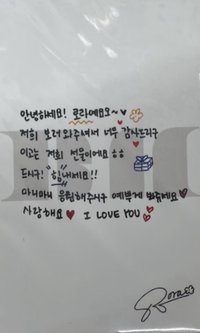 안녕하세요! 로라예요오~♥
저희 보러 와주셔서 너무 감사드리구
이고는 저희 선물이에요 ㅎㅎ
드시구! 힘내세요!!
마니마니 응원해주시구 예쁘게 봐주세요♥
사랑해요♥ I LOVE YOU♥
Rora